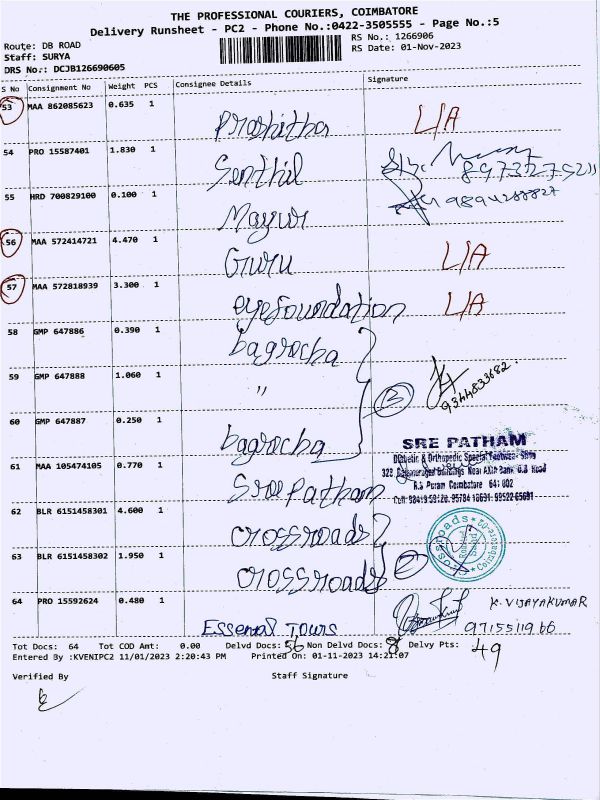 THE PROFESSIONAL COURIERS, COIMBATORE
Delivery Runsheet - PC2 - Phone No.:0422-3505555 - Page No.:5
Route: DB ROAD
RS No.: 1266906
Staff: SURYA
RS Date: 01-Nov-2023
DRS No.: DCJB126690605
S No Consignment No Weight PCS Consignee Details Signature
53 MAA 862085623 0.635 1
Prashitha L/A
54 PRO 15587401 1.830 1
Senthil
55 HRD 700829100 0.100 1
Mayur
56 MAA 572414721 4.470 1
Guru L/A
57 MAA 572818939 3.300 1
eyefoundation L/A
58 GMP 647886 0.390 1
bagrecha
59 GMP 647888 1.060 1
" 3 9344833682.
60 GMP 647887 0.250 1
bagrecha
SRE PATHAM
61 MAA 105474105 0.770 1
Diabetic & Orthopedic Special Footwear Shop
Sree Patham
R.S Puram Coimbatore 641 002
62 BLR 6151458301 4.600 1
crossroads
63 BLR 6151458302 1.950 1
crossroads 2
64 PRO 15592624 0.480 1
K. VIJAYAKUMAR
Essenal Tours 9715511966
Tot Docs: 64 Tot COD Amt: 0.00 Delvd Docs: 56 Non Delvd Docs: 8 Delvy Pts: 49
Entered By :KVENIPC2 11/01/2023 2:20:43 PM Printed On: 01-11-2023 14:21:07
Verified By Staff Signature